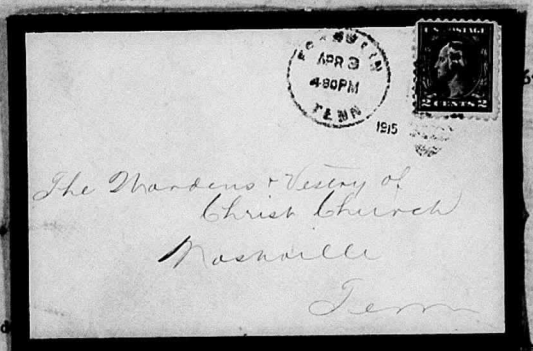 APR 3
4 30 PM
TENN
1915
U.S. POSTAGE
2 CENTS 2
The Wardens & Vestry of
Christ Church
Nashville
Tenn